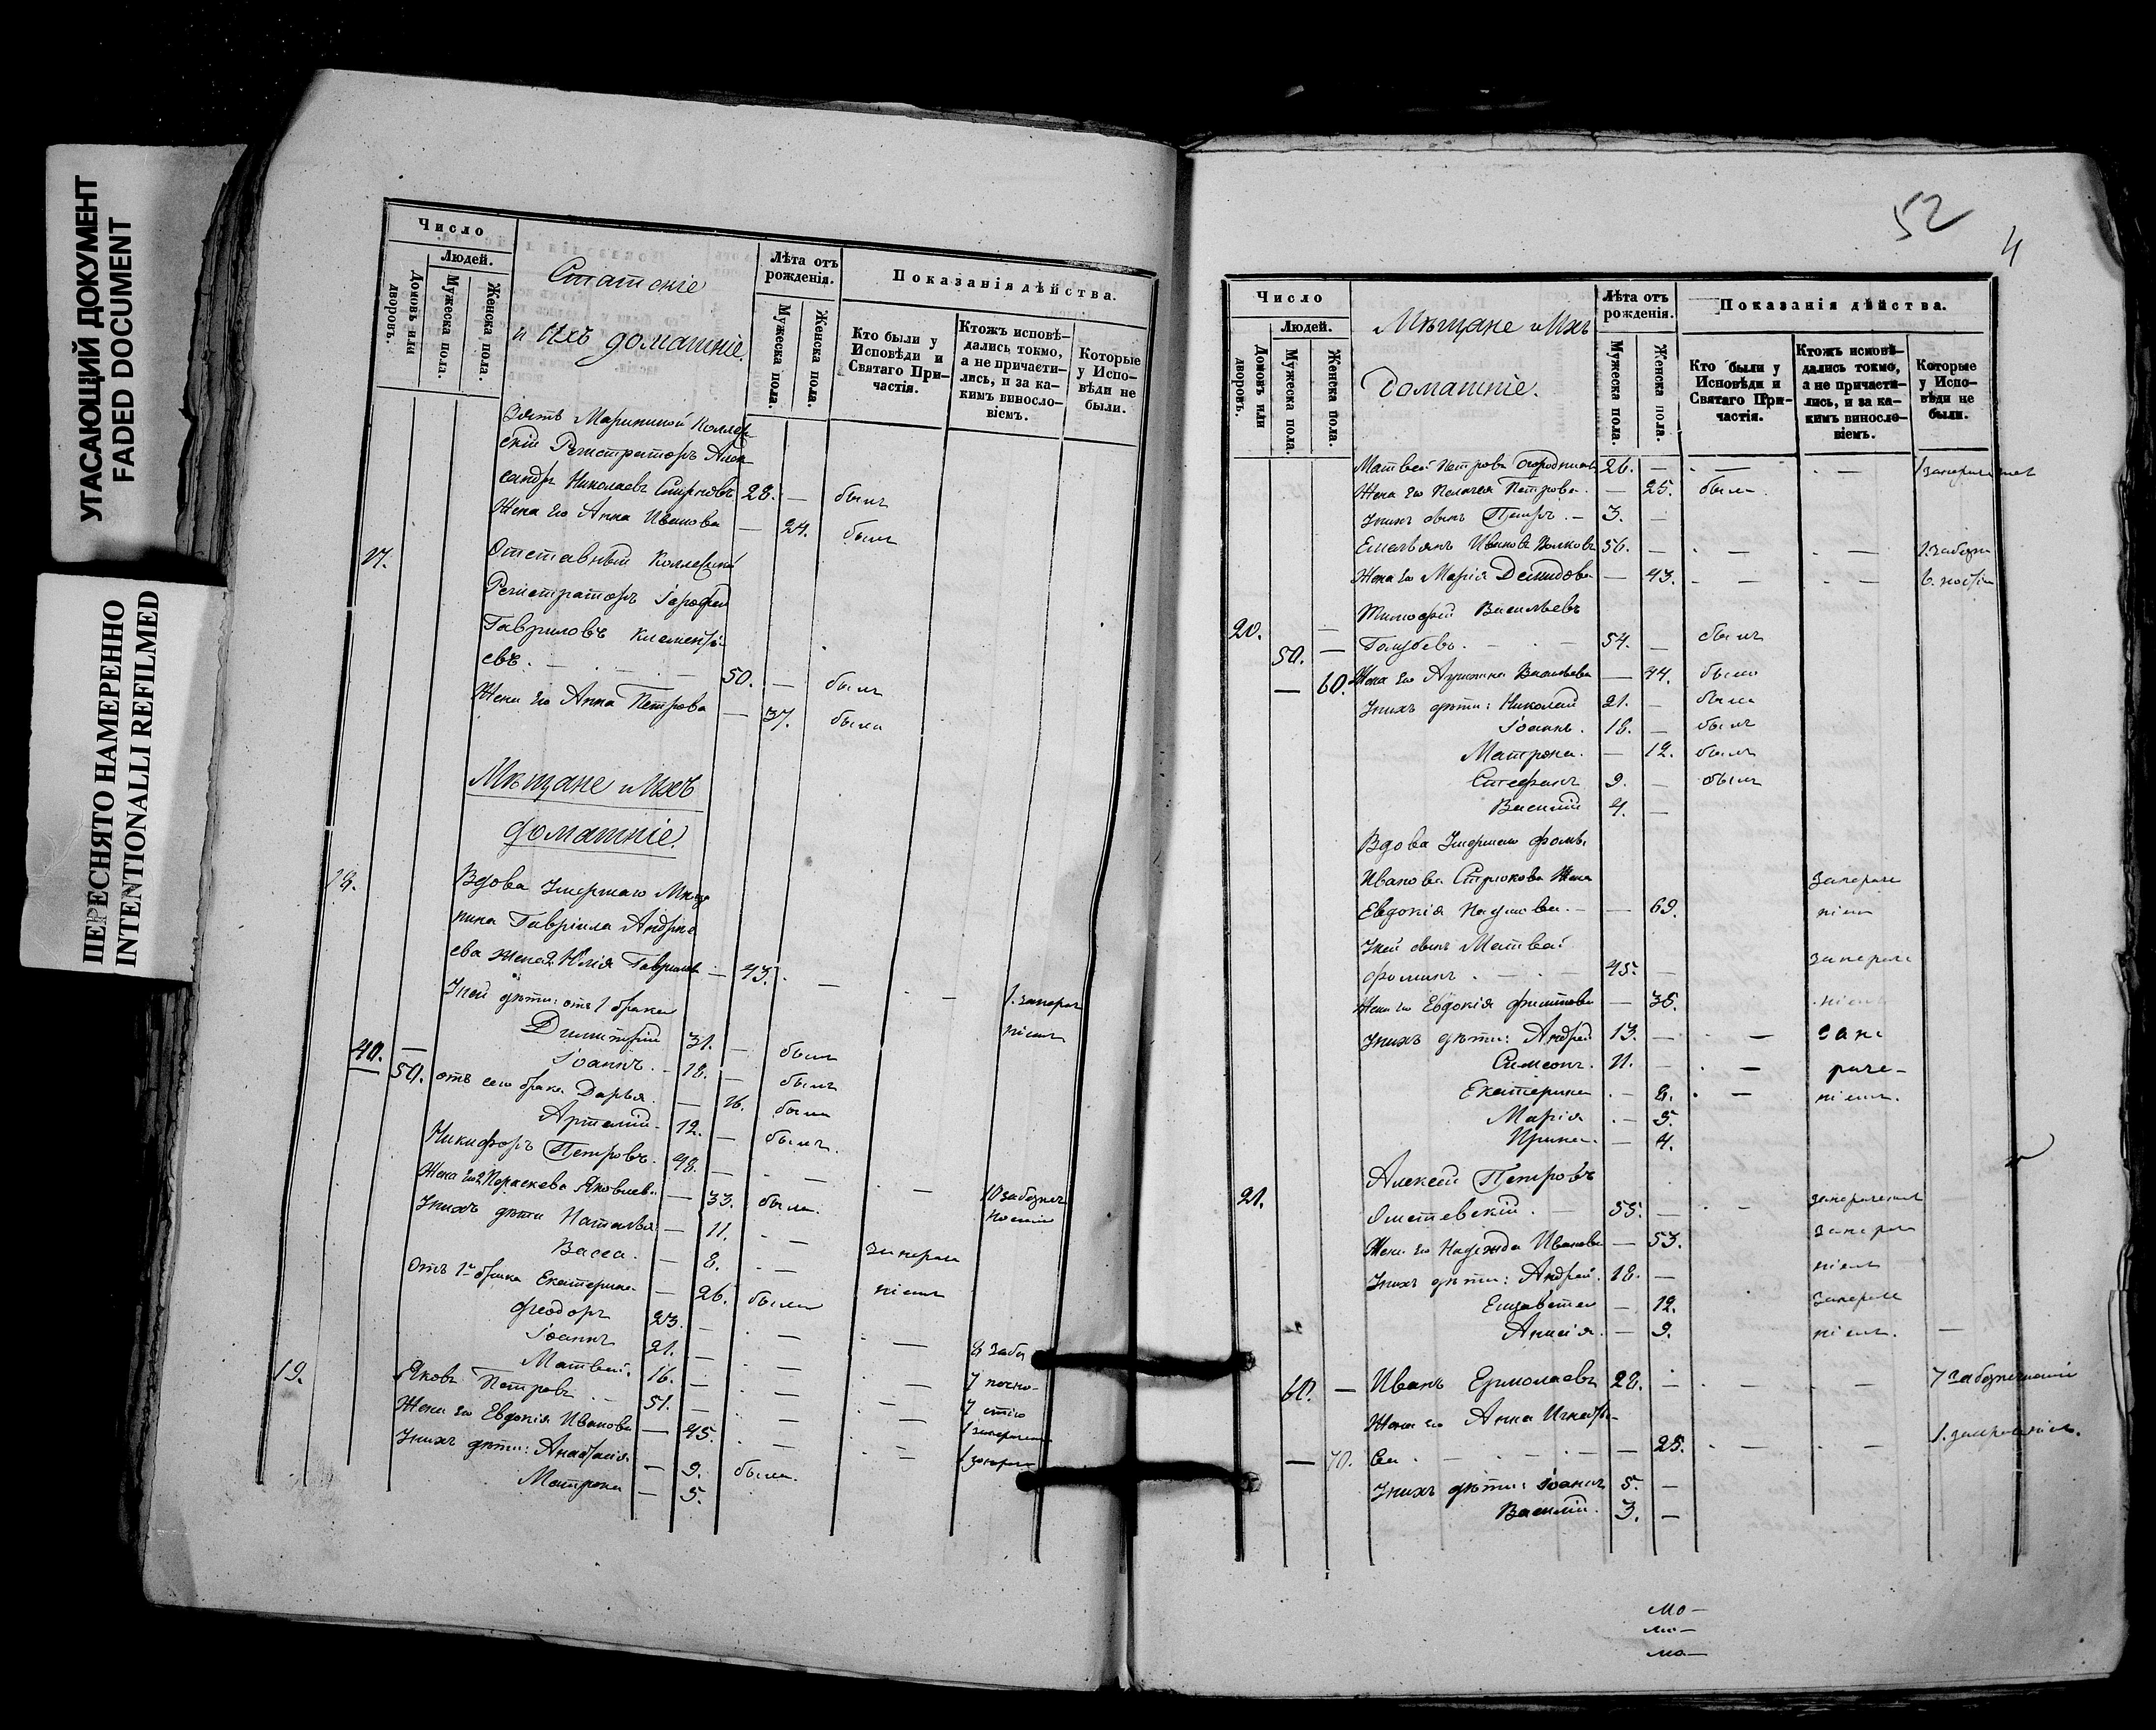 УГАСАЮЩИЙ ДОКУМЕНТ
FADED DOCUMENT
ПЕРЕСНЯТО НАМЕРЕННО
INTENTIONALLI REFILMED
Число
Людей.
Домовъ или дворовъ.
Мужеска пола.
Женска пола.
Статскіе
и Ихъ домашніе.
Лѣта отъ рожденія.
Мужеска пола.
Женска пола.
Показанія дѣйства.
Кто были у Исповѣди и Святаго Причастія.
Ктожъ исповѣдались токмо, а не причастились, и за какимъ винословіемъ.
Которые у Исповѣди не были.
Зять Маркиной Коллеж
скій Регистраторъ Алек
сандръ Николаевъ Смирновъ 28. — былъ
Жена его Анна Иванова — 24. была
17. Отставный Коллежскій
Регистраторъ Іерофей
Гавриловъ Клементь
евъ. 50. — былъ
Жена его Анна Петрова — 37. была
Мѣщане и Ихъ
домашніе.
18. Вдова Умершаго Мѣща
нина Гавріила Андрее
ева жена 2 Юлія Гаврилова — 43. — . — 1. запероч
У ней дѣти: отъ 1 брака ніемъ
Димитрій 31. — былъ
40. — Іоаннъ. 18. — былъ
50. отъ сего брака Дарья. — 16. была
Артемій. 12. — былъ.
Никифоръ Петровъ. 48. — . — . — 10 забезпеч
Жена его 2 Параскева Яковлева — 33. была. ностію
У нихъ дѣти Наталья — 11. . — запероч
Васса. — 8. . — ніемъ
Отъ 1го брака Екатерина — 26. была
Феодоръ 23. — . — . — 8 забез
Іоаннъ 21. — . — . — 7 печно-
Матвей. 16. — . — . — 7 стію
19. Яковъ Петровъ 51. — . — . — 1 запероч
Жена его Евдокія Иванова — 45. . — . — 1 запероч
У нихъ дѣти: Анастасія — 9. была.
Матрона — 5.
52
4
Число
Людей.
Домовъ или дворовъ.
Мужеска пола.
Женска пола.
Мѣщане и Ихъ
Домашніе.
Лѣта отъ рожденія.
Мужеска пола.
Женска пола.
Показанія дѣйства.
Кто были у Исповѣди и Святаго Причастія.
Ктожъ исповѣдались токмо, а не причастились, и за какимъ винословіемъ.
Которые у Исповѣди не были.
Матвей Петровъ Огородниковъ 26. — . — . —
Жена его Пелагея Петрова. — 25. была.
У нихъ сынъ Петръ. — 3. —
Емельянъ Ивановъ Волковъ 56. — . — . —
Жена его Марія Демидова — 43. . — . —
20. — Тимофей Васильевъ
50. — Голубевъ. — 54. — былъ
— 60. Жена его Акулина Васильева — 44. была
У нихъ дѣти: Николай 21. — былъ
Іоаннъ. 18. — былъ
Матрона. — 12. была
Стефанъ 9. — былъ
Василій 4. —
Вдова Умершаго Фомы
Иванова Стрюкова Жена запероч
Евдокія Наумова. — — 69. ніемъ
У ней сынъ Матвей
Фоминъ. — . — 45. — запероч
Жена его Евдокія Филиппова — 35. ніемъ
У нихъ дѣти: Андрей 13. — . — запе
Симеонъ. 11. — . — роче-
Екатерина — 8. . — ніемъ.
Марія — 5.
Ирина. — 4.
21. Алексей Петровъ
55. — . — запероченіемъ
Жена его Надежда Иванова — 53. запероч
У нихъ дѣти: Андрей. 18. — ніемъ
Елизавета — 12. запероч
Анисія. — 9. ніемъ. —
60. — Иванъ Ермолаевъ 28. — . — . —
Жена его Анна Игнатье-
— 70. ва. — 25. . — . —
У нихъ дѣти: Іоаннъ 5. —
Василій. 3. —